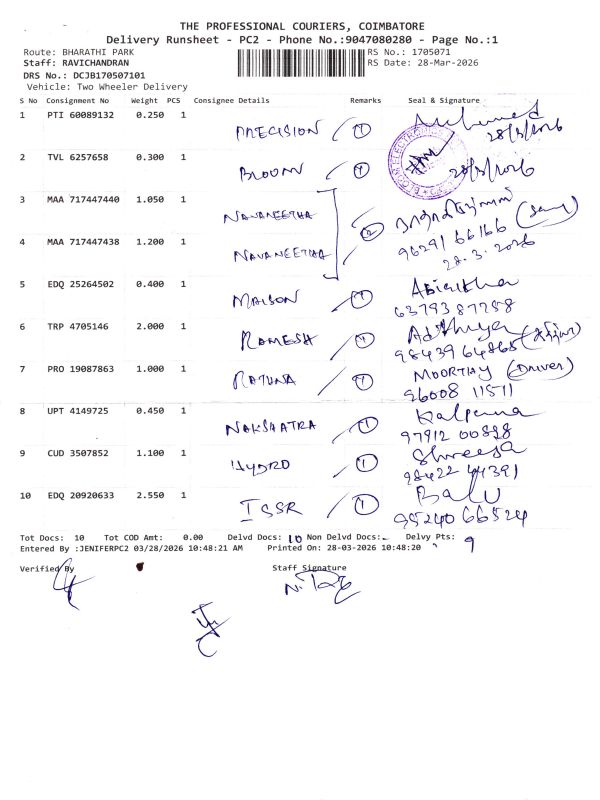 THE PROFESSIONAL COURIERS, COIMBATORE
Delivery Runsheet - PC2 - Phone No.:9047080280 - Page No.:1
Route: BHARATHI PARK RS No.: 1705071
Staff: RAVICHANDRAN RS Date: 28-Mar-2026
DRS No.: DCJB170507101
Vehicle: Two Wheeler Delivery
S No Consignment No Weight PCS Consignee Details Remarks Seal & Signature
1 PTI 60089132 0.250 1 PRECISION 1 28/3/2026
2 TVL 6257658 0.300 1 BLOOM 1 28/3/2026
3 MAA 717447440 1.050 1 NAVANEETHA
4 MAA 717447438 1.200 1 NAVANEETHA 2 96291 66166 28.3.2026
5 EDQ 25264502 0.400 1 MAISON 1
6 TRP 4705146 2.000 1 RAMESH 1 98439 64865
7 PRO 19087863 1.000 1 RATHNA 1 MOORTHY (Driver) 96008 11511
8 UPT 4149725 0.450 1 NAKSHATRA 1 Kalpana 97912 00898
9 CUD 3507852 1.100 1 HYDRO 1 Shreeja 98422 44391
10 EDQ 20920633 2.550 1 ISSR 1 Balu 95240 66524
Tot Docs: 10 Tot COD Amt: 0.00 Delvd Docs: 10 Non Delvd Docs: - Delvy Pts: 9
Entered By :JENIFERPC2 03/28/2026 10:48:21 AM Printed On: 28-03-2026 10:48:20
Verified By Staff Signature